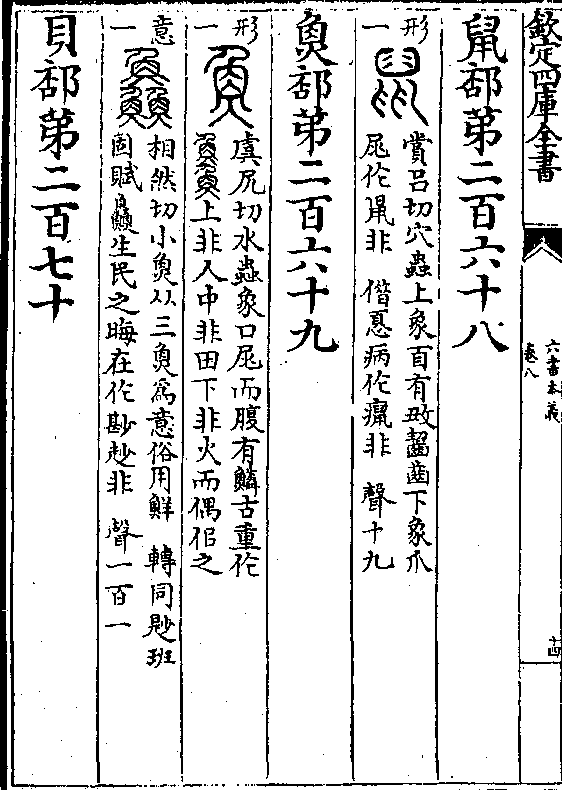 欽定四庫全書
六書本義
卷八
十四
鼠部第二百六十八
形一
鼠
賞呂切穴蟲上象𦣻有齧齒下象爪
尾作鼡非 借㥑病作癙非 聲十九
魚部第二百六十九
形一
魚
虞尻切水蟲象口尾而腹有鱗古重作
䲆上非人中非田下非火而偶佀之
意一
鱻
相然切小魚从三魚為意俗用鮮 轉同尟班
固賦鱻生民之晦在作尠尟非 聲一百一
貝部第二百七十